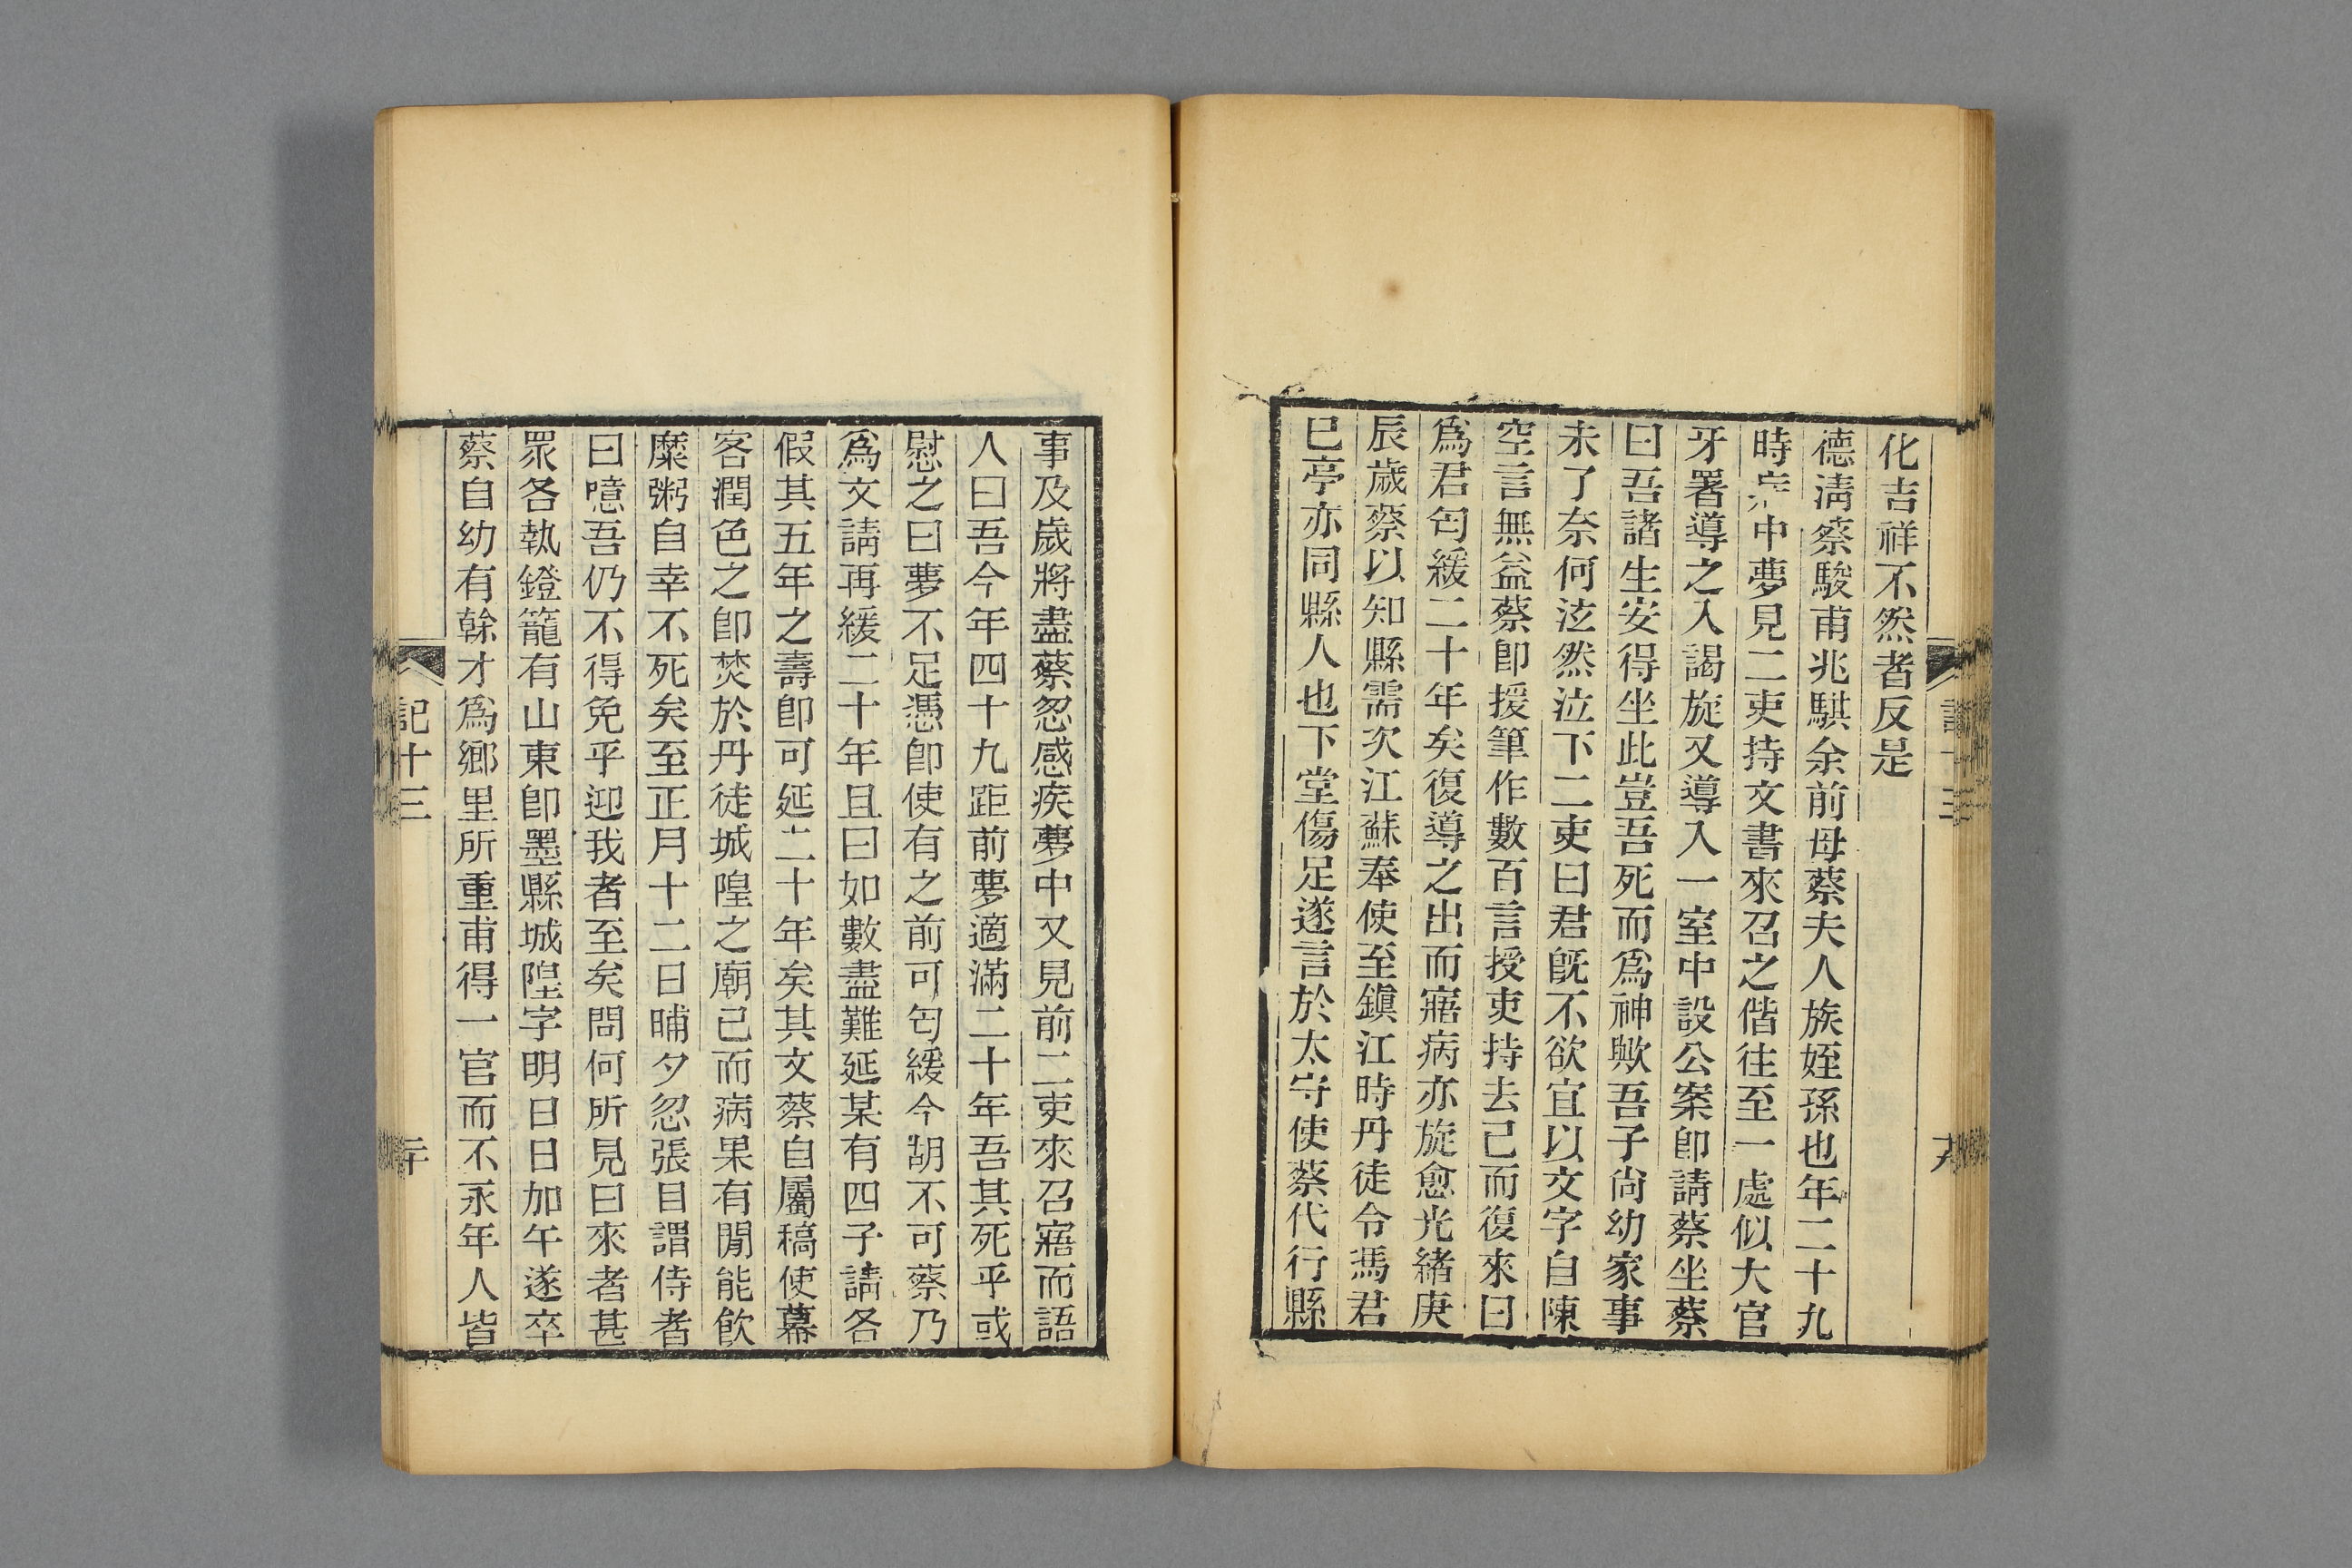 化吉祥不然者反是
德淸蔡駿甫兆騏余前母蔡夫人族姪孫也年二十九
時病中夢見二吏持文書來召之偕往至一處似大官
牙署導之入謁旋又導入一室中設公案卽請蔡坐蔡
曰吾諸生安得坐此豈吾死而爲神歟吾子尙幼家事
未了奈何泫然泣下二吏曰君旣不欲宜以文字自陳
空言無益蔡卽援筆作數百言授吏持去已而復來曰
爲君匄緩二十年矣復導之出而寤病亦旋愈光緒庚
辰歲蔡以知縣需次江蘇奉使至鎭江時丹徒令馮君
巳亭亦同縣人也下堂傷足遂言於太守使蔡代行縣
事及歲將盡蔡忽感疾夢中又見前二吏來召寤而語
人曰吾今年四十九距前夢適滿二十年吾其死乎或
慰之曰夢不足憑卽使有之前可匄緩今胡不可蔡乃
爲文請再緩二十年且曰如數盡難延某有四子請各
假其五年之壽卽可延二十年矣其文蔡自屬稿使幕
客潤色之卽焚於丹徒城隍之廟已而病果有閒能飮
糜粥自幸不死矣至正月十二日晡夕忽張目謂侍者
曰噫吾仍不得免乎迎我者至矣問何所見曰來者甚
眾各執鐙籠有山東卽墨縣城隍字明日日加午遂卒
蔡自幼有榦才爲鄉里所重甫得一官而不永年人皆
記十三